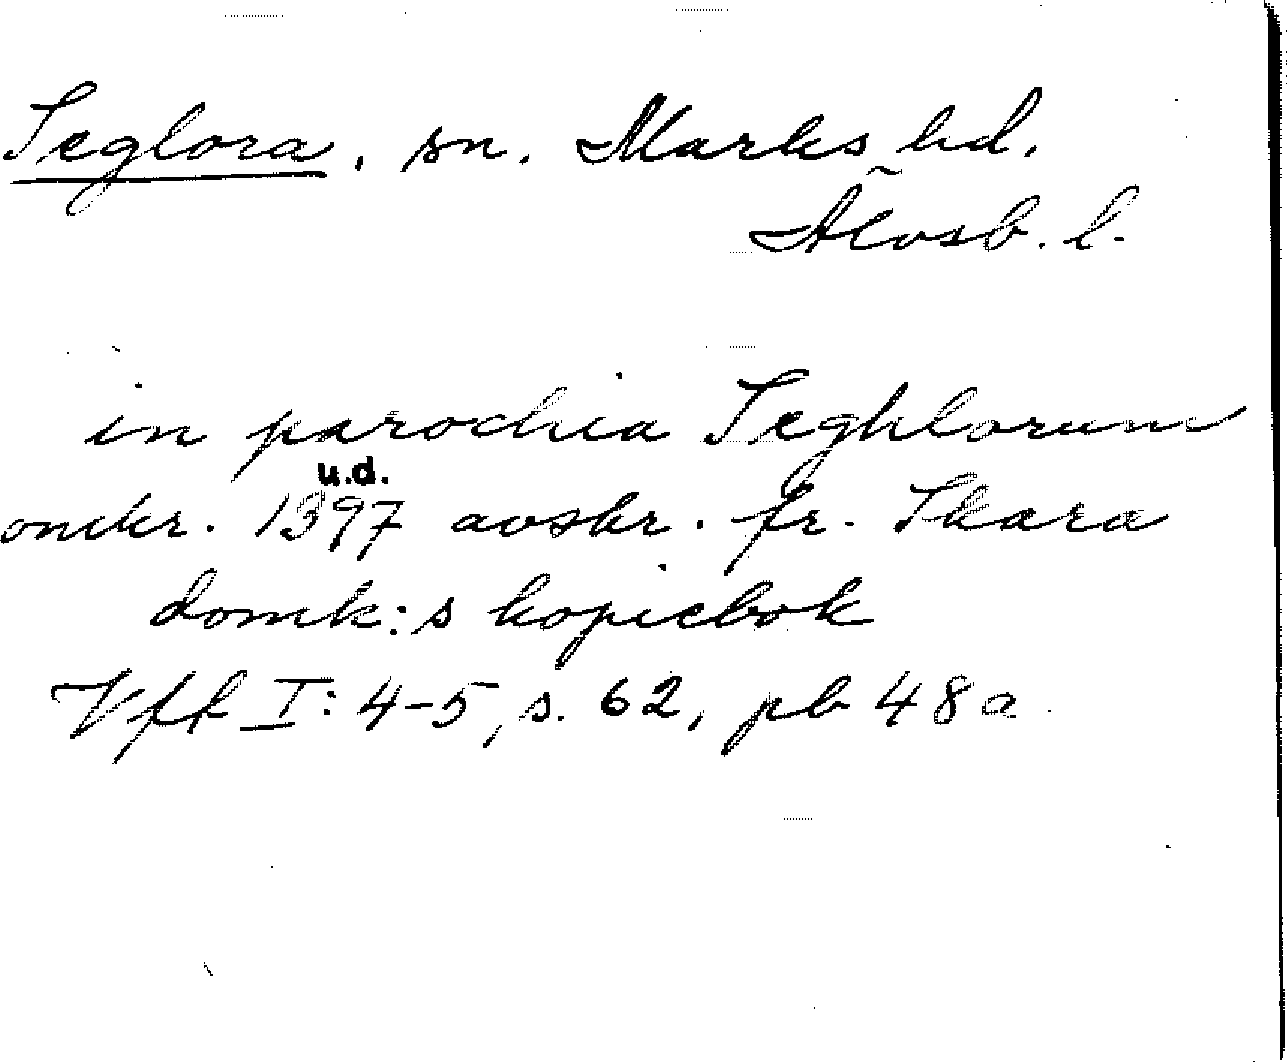 Seglora, sn. Marks hd.
Älvsb. l.
in parochia Seghlorum
u.d.
omkr. 1397 avskr. fr. Skara
domk:s kopiebok
Vff I: 4-5, s. 62, pb 48a